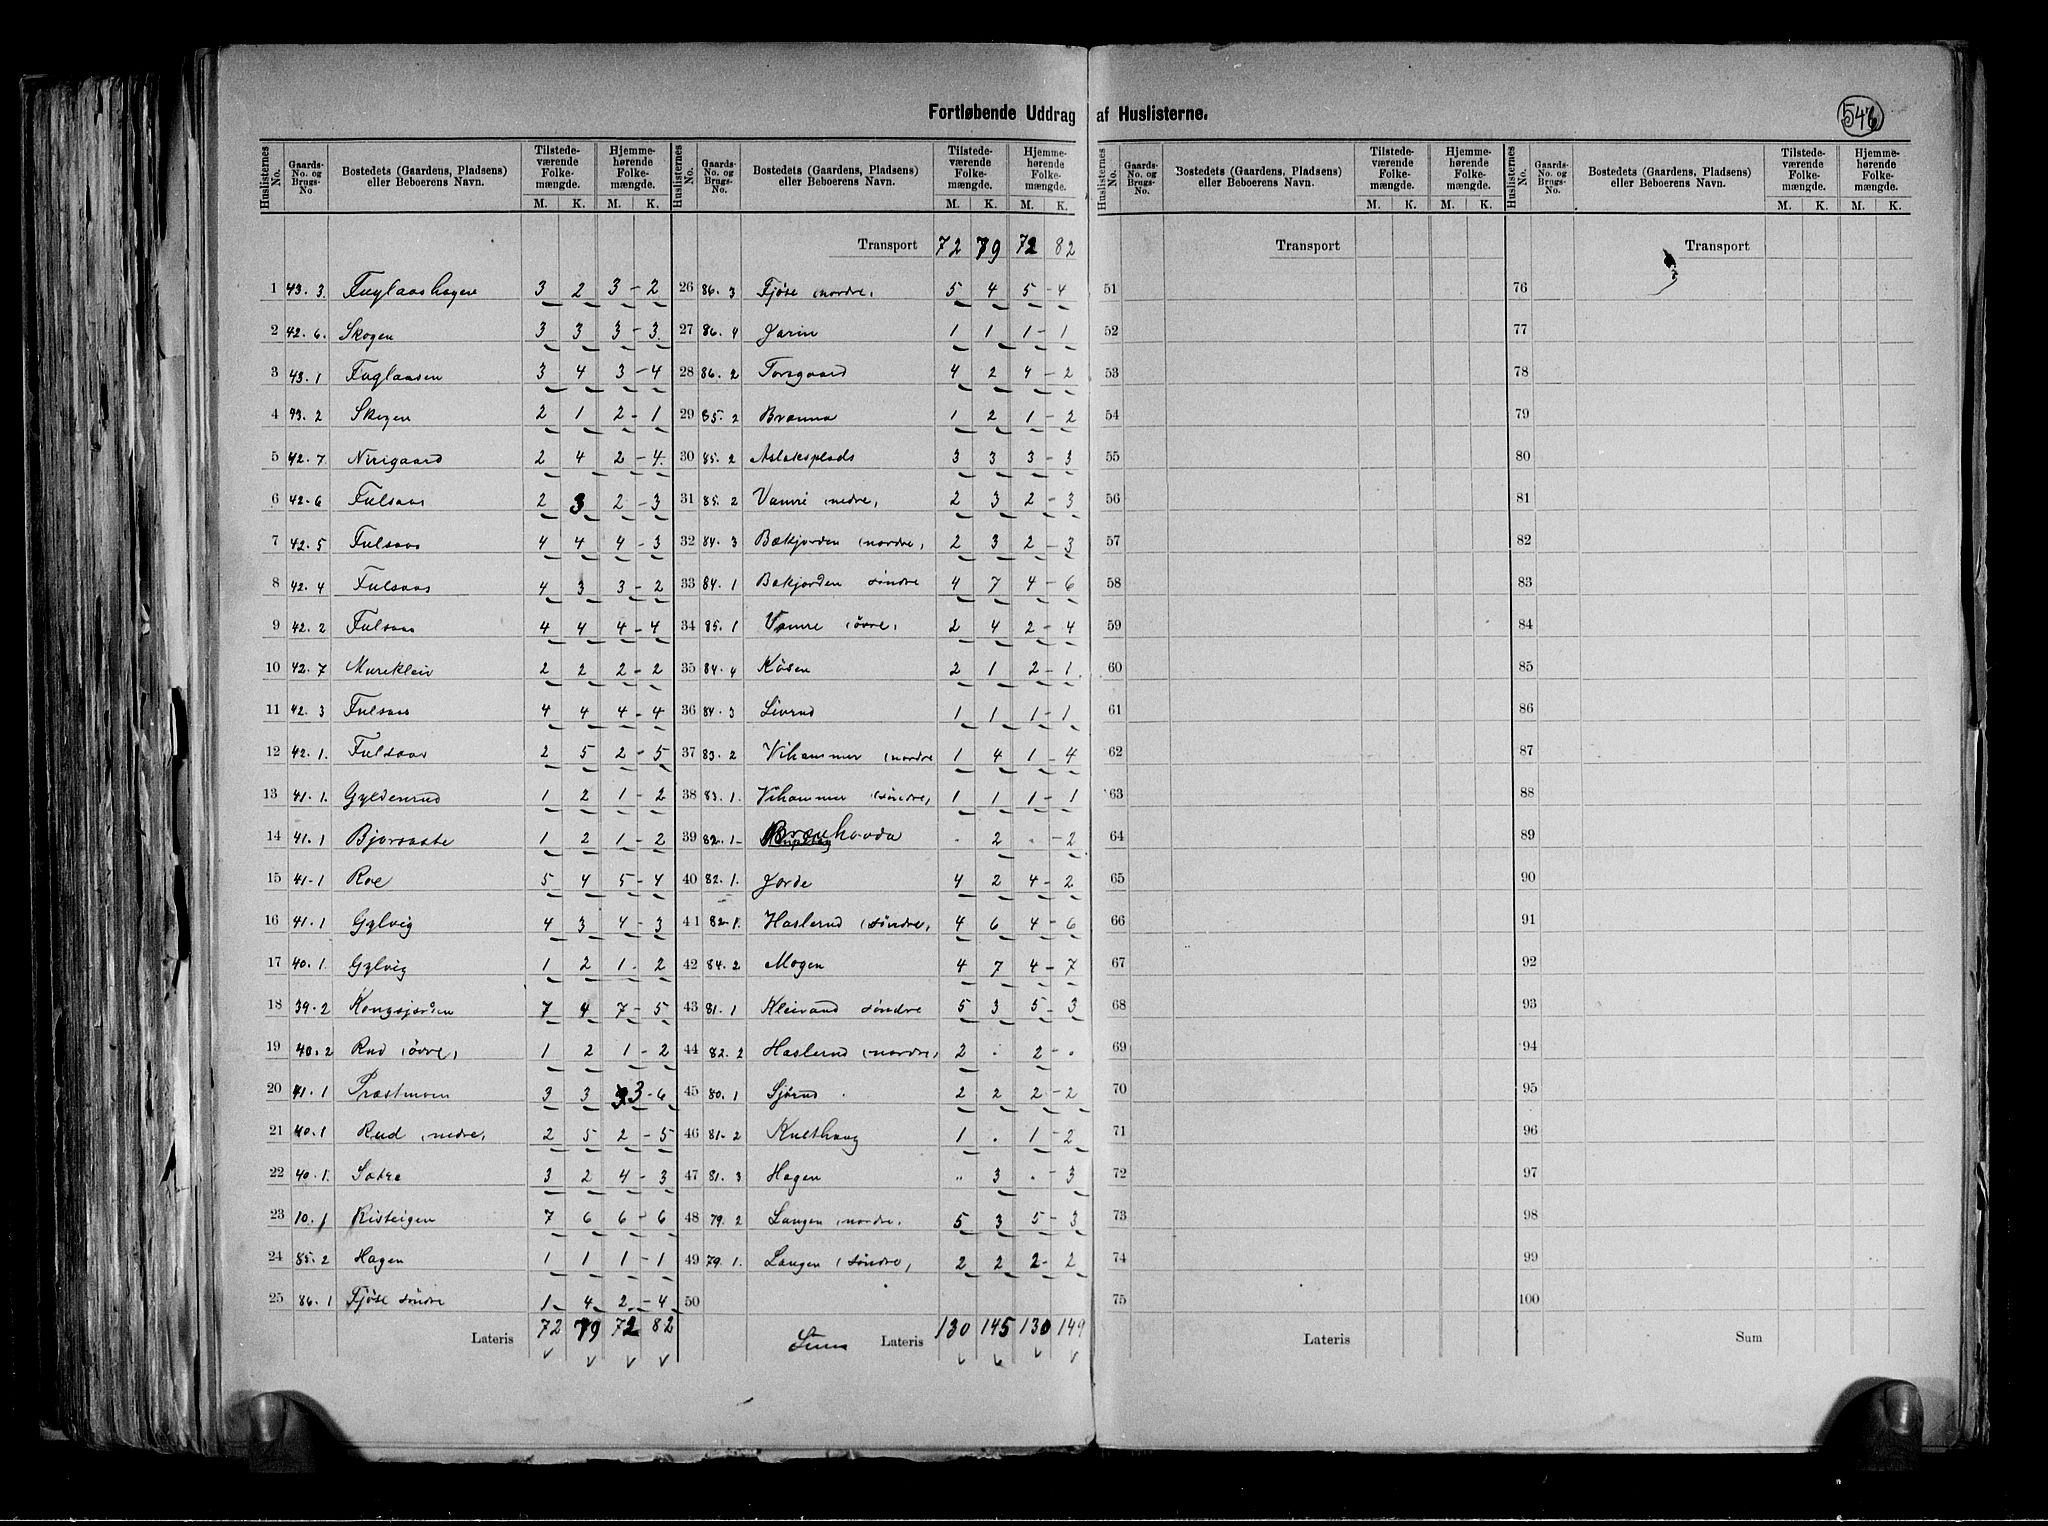 Fortløbende Uddrag af Huslisterne.
546
Huslisternes No. Gaards-No. og Brugs-No. Bostedets (Gaardens, Pladsens) eller Beboerens Navn. Tilstedeværende Folkemængde. M. K. Hjemmehørende Folkemængde. M. K.
1 43. 3. Fuglaashagen 3 2 3 - 2
2 42. 6. Skogen 3 3 3 - 3
3 43. 1 Fuglaasen 3 4 3 - 4
4 43. 2 Skogen 2 1 2 - 1
5 42. 7. Nirigaard 2 4 2 - 4
6 42. 6 Fulsaas 2 3 2 - 3
7 42. 5 Fulsaas 4 4 4 - 3
8 42. 4 Fulsaas 4 3 3 - 2
9 42. 2 Fulsaas 4 4 4 - 4
10 42. 7 Murekleiv 2 2 2 - 2
11 42. 3 Fulsaas 4 4 4 - 4
12 42. 1. Fulsaas 2 5 2 - 5
13 41. 1. Gyldenrud 1 2 1 - 2
14 41. 1 Bjoraaste 1 2 1 - 2
15 41-1 Roe 5 4 5 - 4
16 41. 1 Gylvig 4 3 4 - 3
17 40. 1. Gylvig 1 2 1 - 2
18 39. 2 Kongsjorden 7 4 7 - 5
19 40. 2 Rud (øvre) 1 2 1 - 2
20 41. 1 Præstmoen 3 3 3 - 6
21 40. 1 Rud (nedre) 2 5 2 - 5
22 40. 1. Sætre 3 2 4 - 3
23 10. 1 Risteigen 7 6 6 - 6
24 85. 2 Hagen 1 1 1 - 1
25 86. 1 Fjøse søndre 1 4 2 - 4
Lateris 72 79 72 82
Huslisternes No. Gaards-No. og Brugs-No. Bostedets (Gaardens, Pladsens) eller Beboerens Navn. Tilstedeværende Folkemængde. M. K. Hjemmehørende Folkemængde. M. K.
Transport 72 79 72 82
26 86. 3 Fjøse (nordre) 5 4 5 - 4
27 86. 4 Jarin 1 1 1 - 1
28 86. 2 Torsgaard 4 2 4 - 2
29 85. 2 Brænna 1 2 1 - 2
30 85. 2 Aslaksplads 3 3 3 - 3
31 85. 2 Vamre (nedre) 2 3 2 - 3
32 84. 3 Bækjorden (nordre) 2 3 2 - 3
33 84. 1 Bækjorden søndre 4 7 4 - 6
34 85. 1 Vamre (øvre) 2 4 2 - 4
35 84. 4 Kåsen 2 1 2 - 1
36 84. 3 Livrud 1 1 1 - 1
37 83. 2 Vihammer (nordre 1 4 1 - 4
38 83. 1. Vihammer (søndre) 1 1 1 - 1
39 82. 1 - Brænhovda . 2 . - 2
40 82. 1. Jorde 4 2 4 - 2
41 82. 1. Haslerud (søndre) 4 6 4 - 6
42 84. 2 Mogen 4 7 4 - 7
43 81. 1 Kleivrud søndre 5 3 5 - 3
44 82. 2 Haslerud (nordre) 2 . 2 - .
45 80. 1 Sjørud 2 2 2 - 2
46 81. 2 Kulthaug 1 . 1 - 2
47 81. 3 Hagen " 3 . - 3
48 79. 2 Langen (nordre) 5 3 5 - 3
49 79. 1. Langen (søndre) 2 2 2 - 2
50
Sum Lateris 130 145 130 149
Huslisternes No. Gaards-No. og Brugs-No. Bostedets (Gaardens, Pladsens) eller Beboerens Navn. Tilstedeværende Folkemængde. M. K. Hjemmehørende Folkemængde. M. K.
Transport
51
52
53
54
55
56
57
58
59
60
61
62
63
64
65
66
67
68
69
70
71
72
73
74
75
Lateris
Huslisternes No. Gaards-No. og Brugs-No. Bostedets (Gaardens, Pladsens) eller Beboerens Navn. Tilstedeværende Folkemængde. M. K. Hjemmehørende Folkemængde. M. K.
Transport
76
77
78
79
80
81
82
83
84
85
86
87
88
89
90
91
92
93
94
95
96
97
98
99
100
Sum